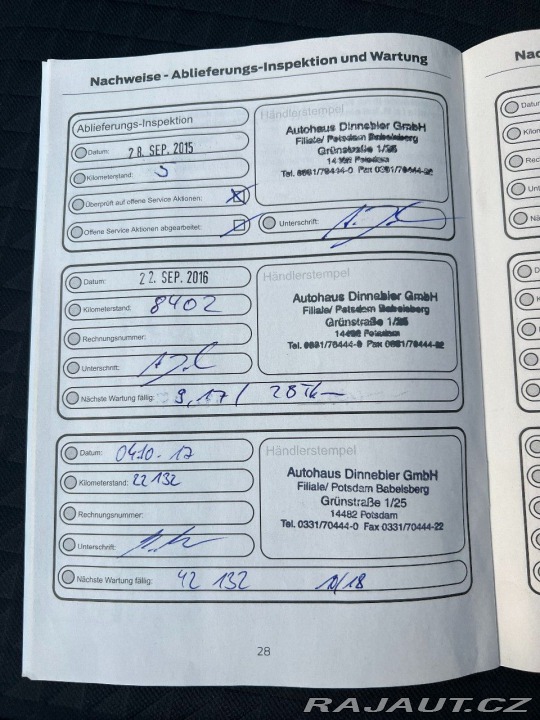 Nachweise - Ablieferungs-Inspektion und Wartung
Ablieferungs-Inspektion
Datum: 28. SEP. 2015
Kilometerstand: 5
Überprüft auf offene Service Aktionen:
Offene Service Aktionen abgearbeitet:
Händlerstempel
Autohaus Dinnebier GmbH
Filiale/ Potsdam Babelsberg
Grünstraße 1/25
Potsdam
Unterschrift:
Datum: 22. SEP. 2016
Kilometerstand: 8402
Rechnungsnummer:
Unterschrift:
Nächste Wartung fällig: 9.17 / 28Tk
Händlerstempel
Autohaus Dinnebier GmbH
Filiale/ Potsdam Babelsberg
Grünstraße 1/25
14482 Potsdam
Datum: 04.10.17
Kilometerstand: 22 132
Rechnungsnummer:
Unterschrift:
Nächste Wartung fällig: 42 132 10/18
Händlerstempel
Autohaus Dinnebier GmbH
Filiale/ Potsdam Babelsberg
Grünstraße 1/25
14482 Potsdam
Tel. 0331/70444-0 Fax 0331/70444-22
28
RAJAUT.CZ